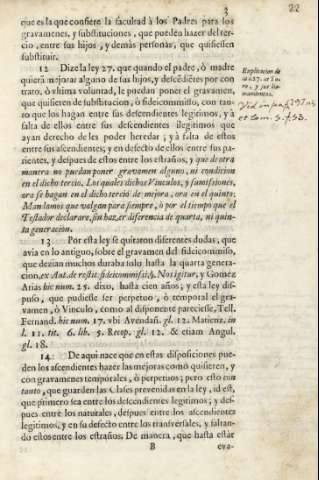 3
22
que es la que confiere la facultad à los Padres para los
gravamenes, y substituciones, que pueden hazer del ter-
cio, entre sus hijos, y demàs personas, que quisiessen
substituir.
12 Dize la ley 27. que quando el padre, ò madre
quiera mejorar alguno de sus hijos, y descēdiētes por con
trato, ò vltima voluntad, le puedan poner el gravamen,
que quisieren de substitucion, ò fideicommisso, con tan-
to que los hagan entre sus descendientes legitimos, y à
falta de ellos entre sus descendientes ilegitimos que
ayan derecho de les poder heredar; y à falta de estos
entre sus ascendientes; y en defecto de ellos entre sus pa-
rientes, y despues de estos entre los estraños; y que de otra
manera no puedan poner gravamen alguno, ni condicion
en el dicho tercio. Los quales dichos Vinculos, y sumissiones,
ora se hagan en el dicho tercio de mejora, ora en el quinto:
Mandamos que valgan para siempre, ò por el tiempo que el
Testador declarare, sin hazer diferencia de quarta, ni quin-
ta generacion.
Explicacion de
la l. 27. de
y sus
Vid. in pag.
et tom. 5. f. 53.
13 Por esta ley se quitaron diferentes dudas, que
avia en lo antiguo, sobre el gravamen del fideicommisso,
que dezian muchos duraba solo hasta la quarta genera-
cion, ex Aut. de restit. fideicommissi, §. Nos igitur, y Gomez
Arias hic num. 25. dixo, hasta cien años; y esta ley dis-
puso, que pudiesse ser perpetuo, ò temporal el gra-
vamen, ò Vinculo, como al disponente pareciesse, Tell.
Fernand. hic num. 17. vbi Avendañ. gl. 12. Matienz. in
l. 11. tit. 6. lib. 5. Recop. gl. 12. & etiam Angul.
gl. 18.
14 De aqui nace que en estas disposiciones pue-
den los ascendientes hazer las mejoras como quisieren, y
con gravamenes temporales, ò perpetuos; pero esto con
tanto, que guarden las clases prevenidas en la ley, id est,
que primero sea entre los descendientes legitimos; y des-
pues entre los naturales, despues entre los ascendientes
legitimos, y en su defecto entre los transversales, y faltan-
do estos entre los estraños. De manera, que hasta estàr
B
eva-